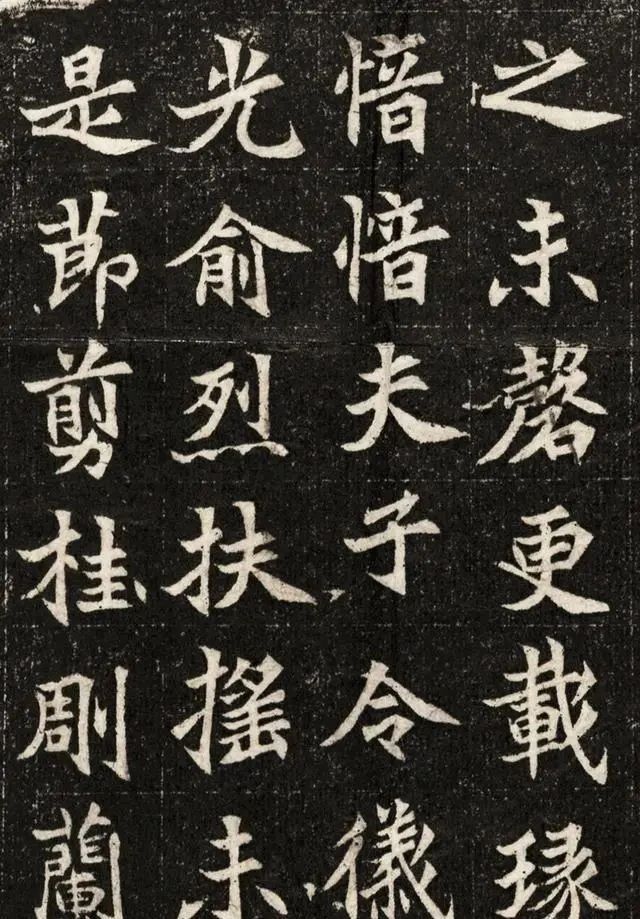 之未磬更載琢
愔愔夫子令儀
光俞烈扶搖未
是節剪桂剮蘭